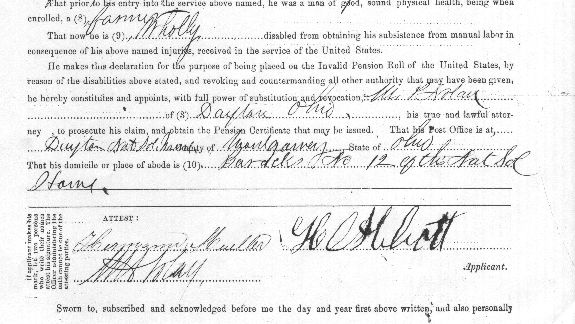 That prior to his entry into the service above named, he was a man of good, sound physical health, being when
enrolled, a (8) farmer
That now he is (9) Wholly disabled from obtaining his subsistence from manual labor in
consequence of his above named injury, received in the service of the United States.
He makes this declaration for the purpose of being placed on the Invalid Pension Roll of the United States, by
reason of the disabilities above stated, and revoking and countermanding all other authority that may have been given,
he hereby constitutes and appoints, with full power of substitution and revocation,
of (3) Dayton Ohio, his true and lawful attor-
ney to prosecute his claim, and obtain the Pension Certificate that may be issued. That his Post Office is at,
Dayton County of Montgomery, State of Ohio
That his domicile or place of abode is (10) Barracks No 12 of the Nat Sol
Home
If applicant makes his
mark, let two persons
who write their names
attest his signature. The
Officer administering the
oath cannot be one of the
attesting parties.
ATTEST:
H C Abbott
Applicant.
Sworn to, subscribed and acknowledged before me the day and year first above written, and also personally